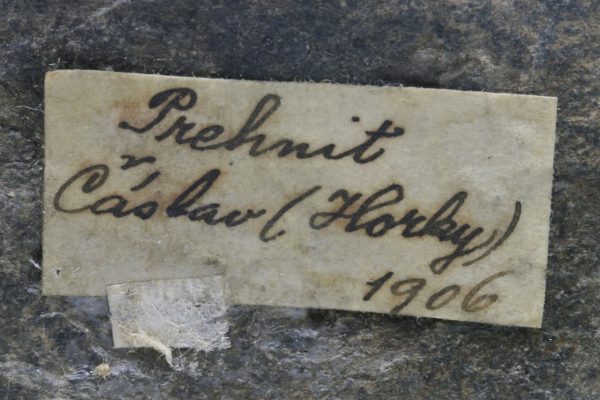 Prehnit
Čáslav (Horky)
1906